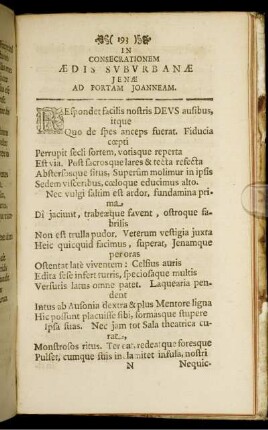 193
IN
CONSECRATIONEM
ÆDIS SVBVRBANÆ
JENÆ
AD PORTAM JOANNEAM.
REspondet facilis nostris DEVS ausibus,
itque
Quo de spes anceps fuerat. Fiducia
cœpti
Perrupit sæcli sortem, votisque reperta
Est via. Post sacrosque lares & tecta refecta
Abstersosque situs, Superûm molimur in ipsis
Sedem visceribus, cæloque educimus alto.
Nec vulgi saltim est ardor, fundamina pri-
ma
Di jaciunt, trabeæque favent, ostroque fa-
brilis
Non est trulla pudor. Veterum vestigia juxta
Heic quicquid facimus, superat, Jenamque
per oras
Ostentat late viventem: Celsius auris
Edita sese infert turris, speciosaque multis
Versuris latus omne patet. Laquearia pen-
dent
Intus ab Ausonia dextra & plus Mentore ligna
Hic possunt placuisse sibi, formasque stupere
Ipsa suas. Nec jam tot Sala theatrica cu-
rat
Monstrosos ritus. redeatque foresque
Pulset, cumque suis nostri
N Nequic-